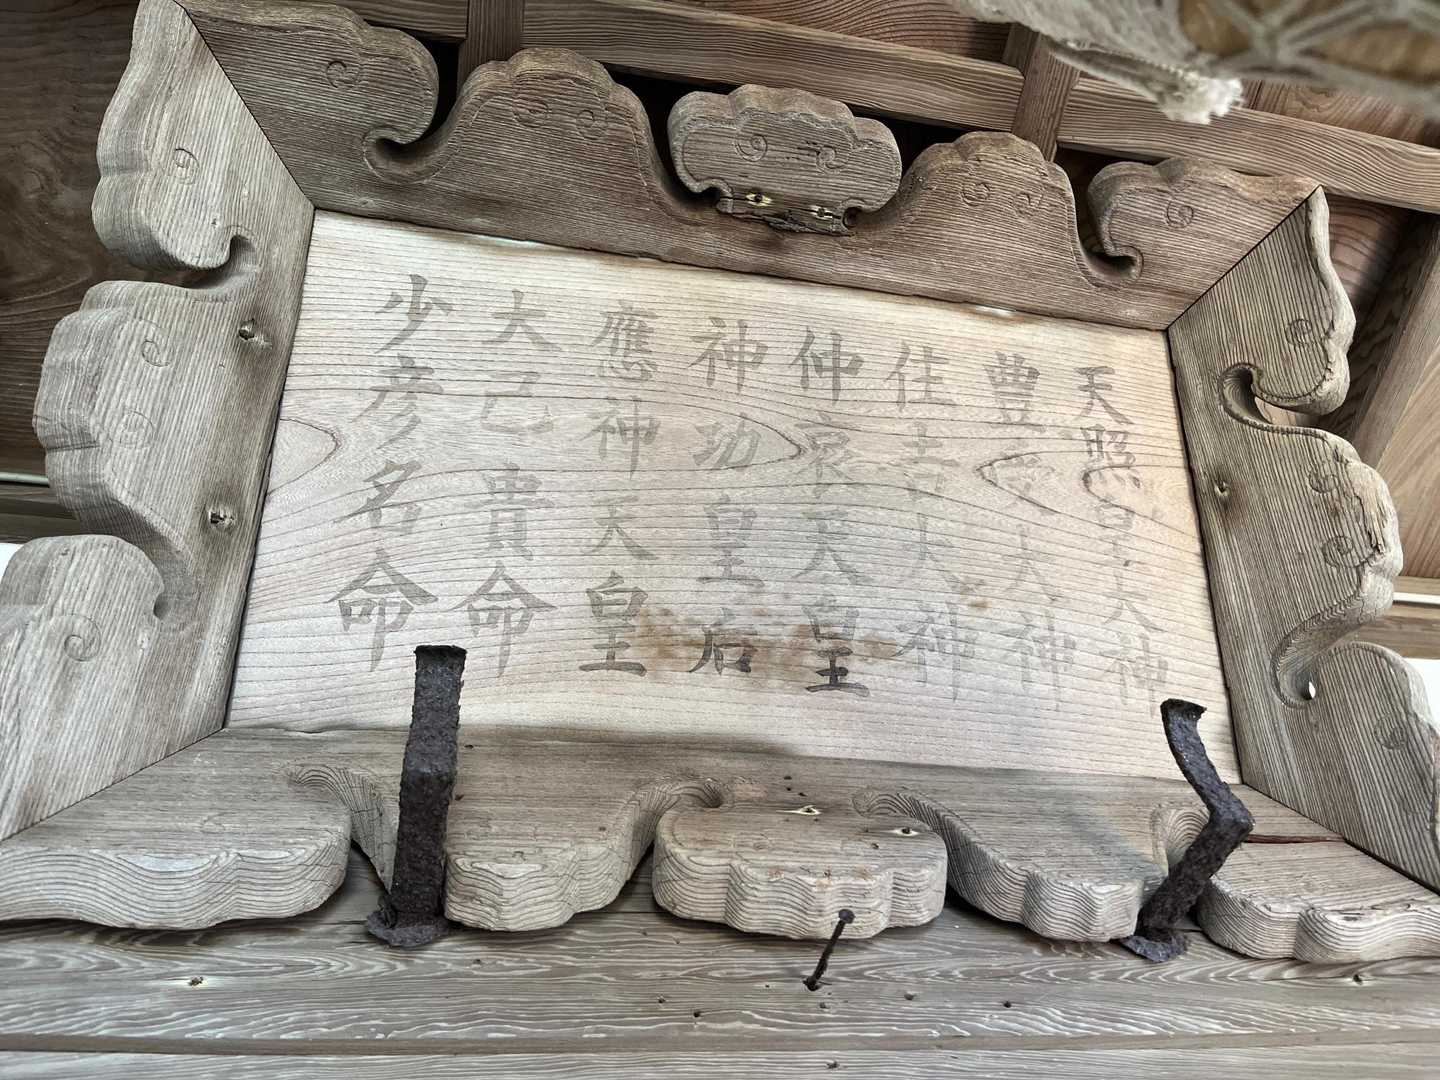 天照皇大神
豊受大神
住吉大神
仲哀天皇
神功皇后
應神天皇
大己貴命
少彦名命